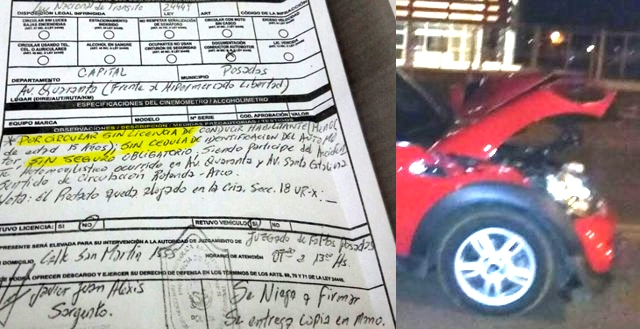 Ley Nacional de Tránsito 24449
DISPOSICIÓN LEGAL INFRINGIDA LEY ART. CÓDIGO DE LA INFRACCIÓN
CIRCULAR SIN LUCES BAJAS ENCENDIDAS ESTACIONAMIENTO INDEBIDO NO RESPETAR SEÑALIZACIÓN DE SEMÁFORO CIRCULAR CON MOTO SIN CASCO
CIRCULAR USANDO TEL. CEL. O AURICULARES ALCOHOL EN SANGRE OCUPANTES NO USAN CINTURÓN DE SEGURIDAD DOCUMENTACIÓN CONDUCTOR AUTOMOTOR LIC. VENCIDA
CAPITAL Posadas
DEPARTAMENTO MUNICIPIO
Av Quaranta (Frente a Hipermercado Libertad)
LUGAR (DIRE/AUT/RUTA/KM)
ESPECIFICACIONES DEL CINEMÓMETRO / ALCOHOLÍMETRO
EQUIPO MARCA MODELO Nº SERIE COD. APROBACIÓN VALOR
OBSERVACIONES / DESCRIPCIÓN - MEDIDAS PRECAUTORIAS / TESTIGOS
* POR CIRCULAR SIN LICENCIA DE CONDUCIR HABILITANTE (MENOR
de edad 15 años), SIN CEDULA DE IDENTIFICACION DEL AUTOMO
tor SIN SEGURO OBLIGATORIO. Siendo participe del Accidente
Automovilistico ocurrido en Av Quaranta y Av Santa Catalina
Sentido de Circulacion Rotonda - Arco.
Nota: el Rodado queda alojado en la Cria. Secc. 18 UR-X.
TUVO LICENCIA: SI NO RETUVO VEHÍCULO: SI NO
PRESENTE SERÁ ELEVADA PARA SU INTERVENCIÓN A LA AUTORIDAD DE JUZGAMIENTO DE Juzgado de Faltas Posadas
DOMICILIO Calle San Martin 1555 HORARIO DE ATENCIÓN 07:00 a 13:00 Hs
PODRÁ OFRECER DESCARGO Y EJERCER SU DERECHO DE DEFENSA EN LOS TÉRMINOS DE LOS ARTS. 69, 70 Y 71 DE LA LEY 24449.
Javier Juan Alexis
Sargento.
Se Niega a Firmar
Se entrega copia en mano.